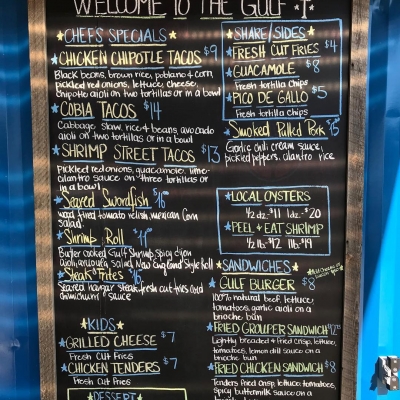 WELCOME TO THE GULF
CHEF'S SPECIALS
CHICKEN CHIPOTLE TACOS $9
Black beans, brown rice, poblano & corn,
pickled red onions, lettuce, cheese,
chipotle aioli on two tortillas or in a bowl
COBIA TACOS $14
Cabbage slaw, rice & beans, avocado
aioli on two tortillas or in a bowl
SHRIMP STREET TACOS $13
Pickled red onions, guacamole, lime-
cilantro sauce on three tortillas or
in a bowl
Seared Swordfish $16
wood fired tomato relish, mexican corn
salad
Shrimp Roll
Butter cooked Gulf Shrimp, spicy dijon
aioli, arugula salad, New England Style Roll
Steak Frites
Seared hangar steak, fresh cut fries and
chimichurri sauce
KIDS
GRILLED CHEESE $7
Fresh Cut Fries
CHICKEN TENDERS $7
Fresh Cut Fries
DESSERT
SHARE/SIDES
FRESH CUT FRIES $4
GUACAMOLE $8
Fresh tortilla chips
PICO DE GALLO $5
Fresh tortilla chips
Smoked Pulled Pork
Garlic chili cream sauce,
pickled peppers, cilantro rice
LOCAL OYSTERS
1/2 dz. $11 1dz. $20
PEEL & EAT SHRIMP
1/2 lb. $12 1lb. $19
SANDWICHES
GULF BURGER $8
100% natural beef, lettuce,
tomatoes, garlic aioli on a
brioche bun
FRIED GROUPER SANDWICH
Lightly breaded & fried crisp, lettuce,
tomatoes, lemon dill sauce on a
brioche bun
FRIED CHICKEN SANDWICH $8
Tenders fried crisp, lettuce, tomatoes,
spicy buttermilk sauce on a